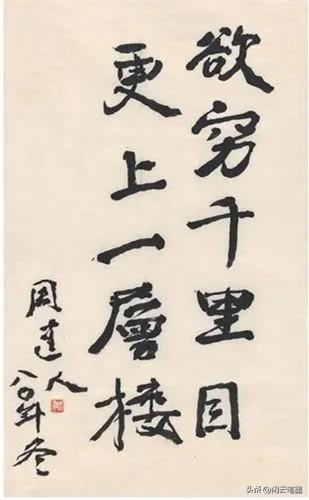 欲穷千里目
更上一層楼
周建人
八〇年冬
头条@闲云笔墨